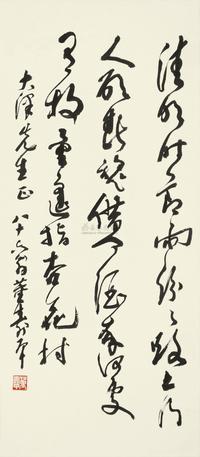 清明時節雨紛々路上行
人欲斷魂借問酒家何處
有牧童遙指杏花村
大澤先生正 八十六翁董壽平